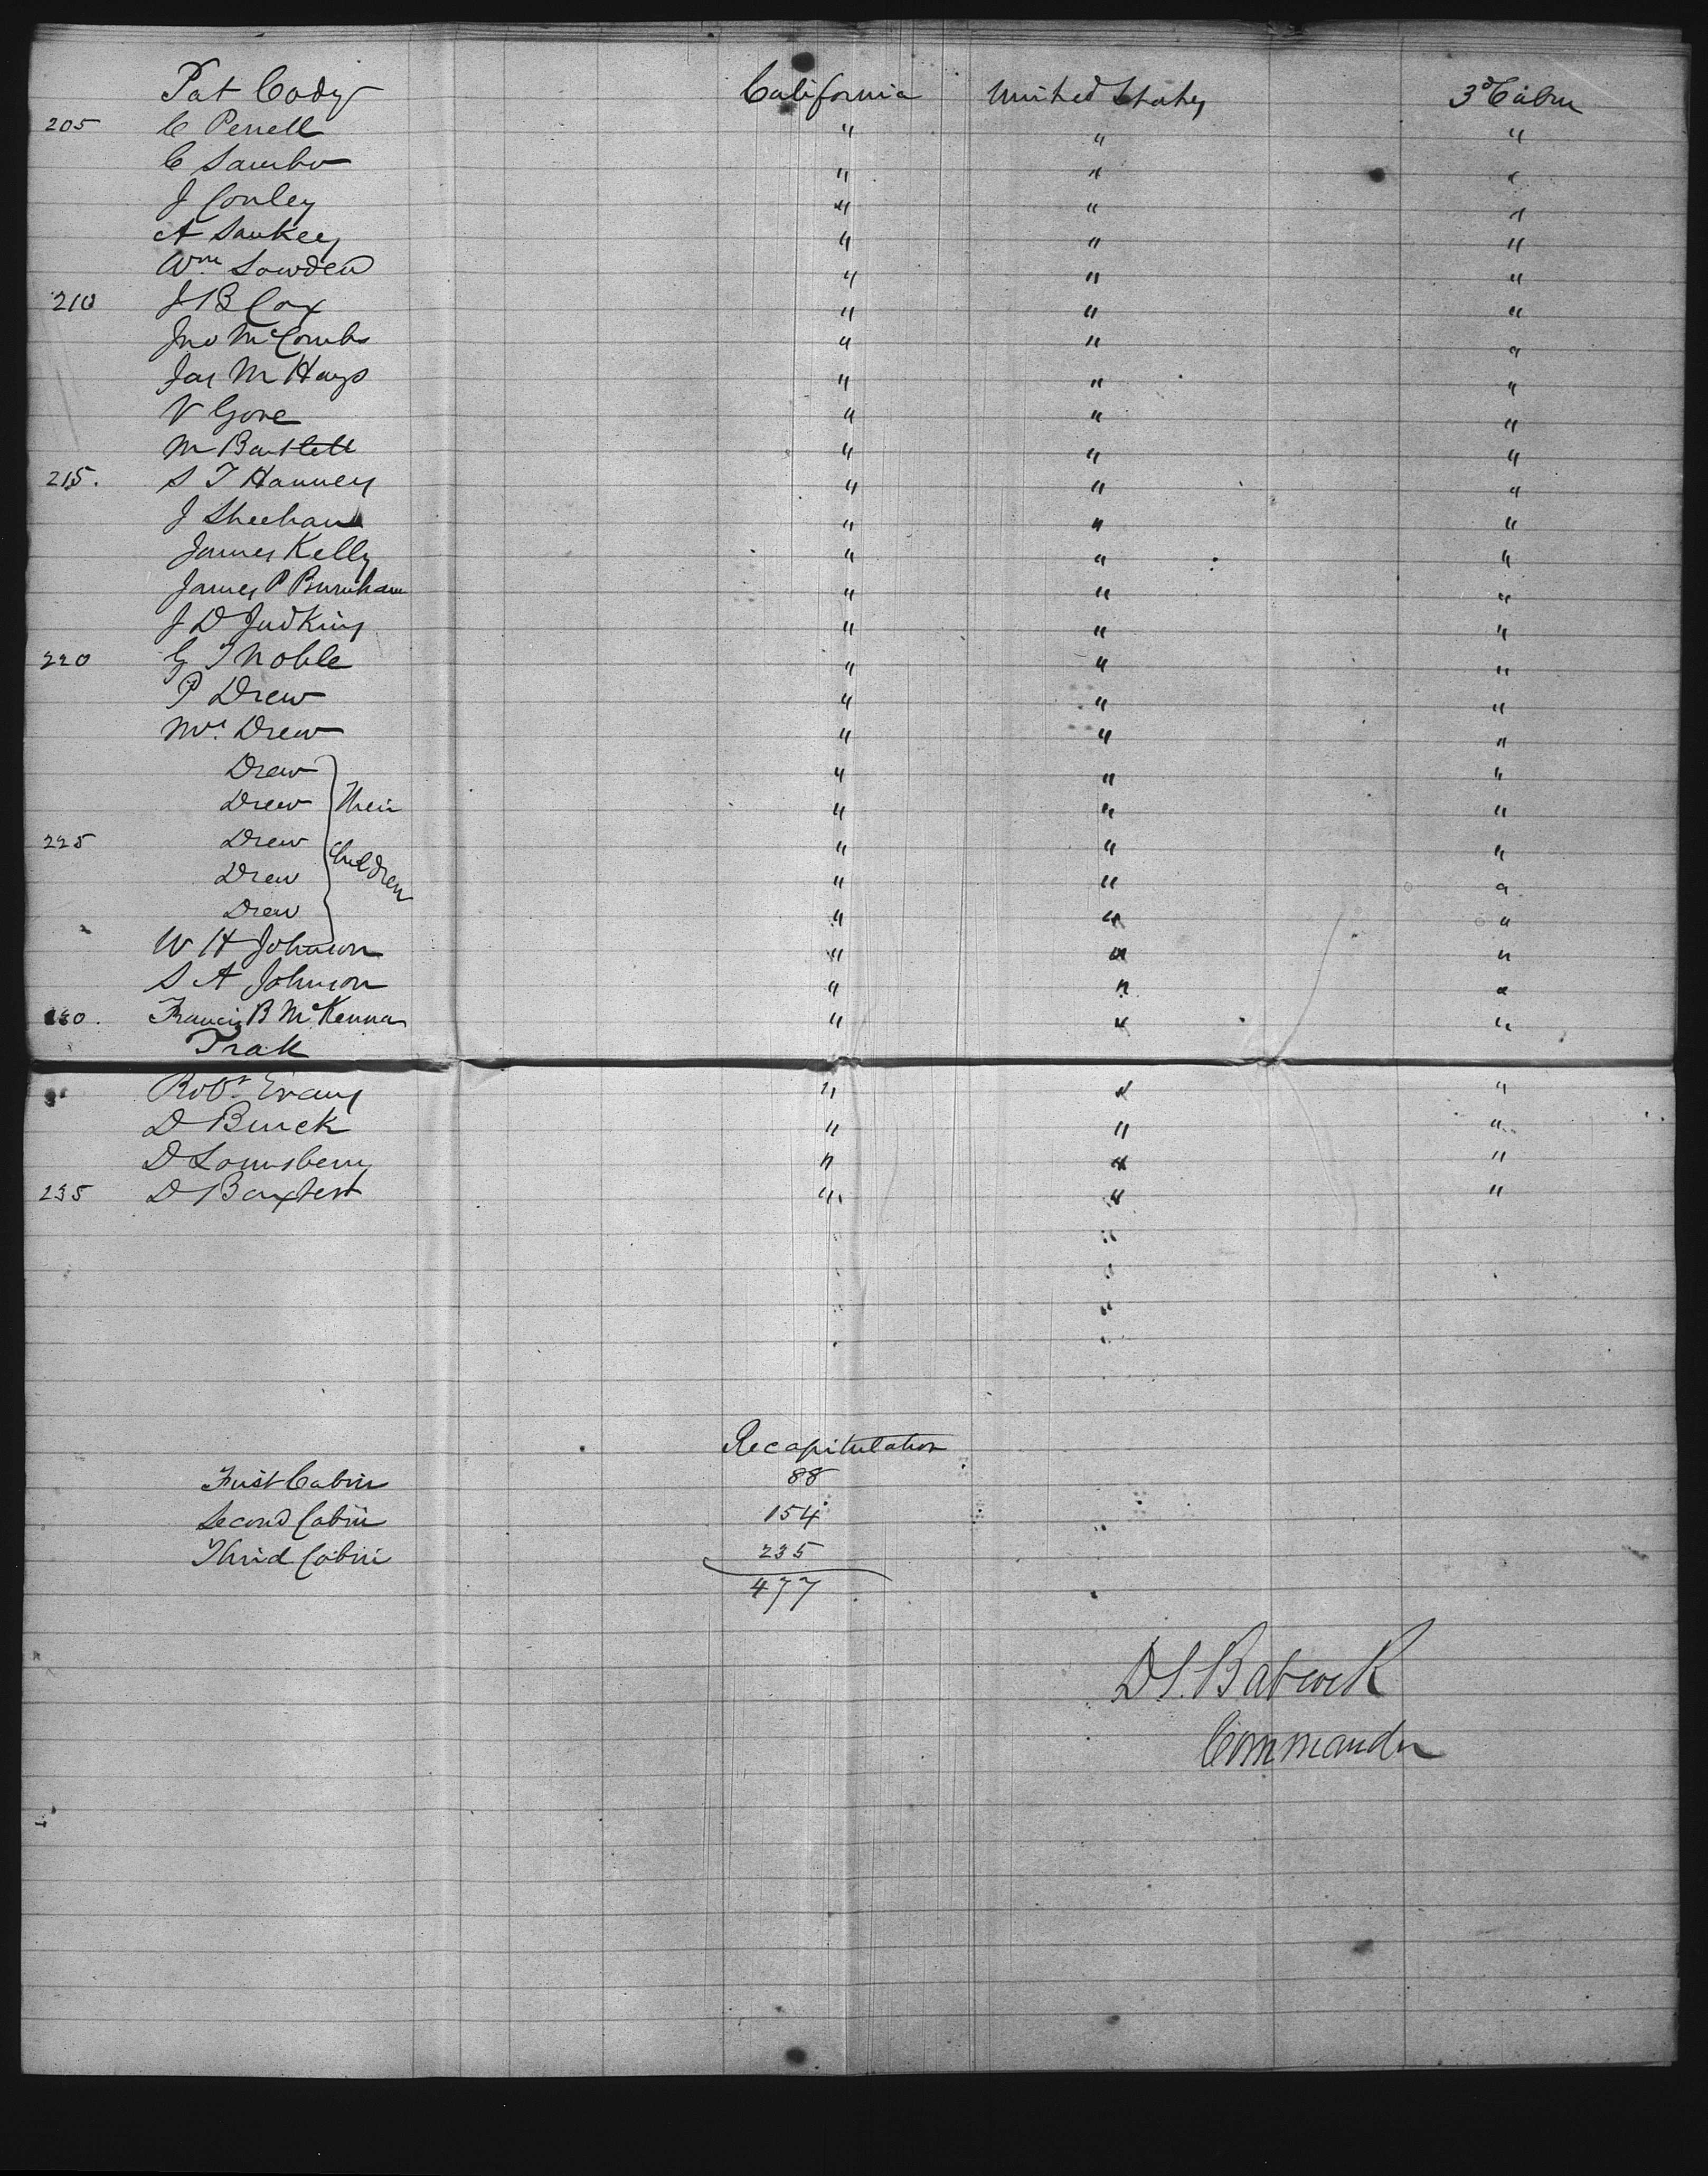 Pat Cody California United States 3d Cabin
205 C Perrell " " "
C Sambo " " "
J Conley " " "
A Sankey " " "
Wm Sowden " " "
210 J B Cox " " "
Jno McCombs " " "
Jas M Hays " " "
V Gore " " "
M Bartlett " " "
215. S T Hanney " " "
J Sheehan " " "
James Kelly " " "
James P Burnham " " "
J D Judkins " " "
220 G T Noble " " "
P Drew " " "
Mrs. Drew " " "
Drew " " "
Drew Their " " "
225 Drew " " "
Drew Children " " "
Drew " " "
W H Johnson " " "
S A Johnson " " "
230. Francis B McKenna " " "
Trak
Robt Evans " " "
D Burck " " "
D Lounsberry " " "
235 D Baxter " " "
Recapitulation
First Cabin 88
Second Cabin 154
Third Cabin 235
477
D S. Babcock
Commander